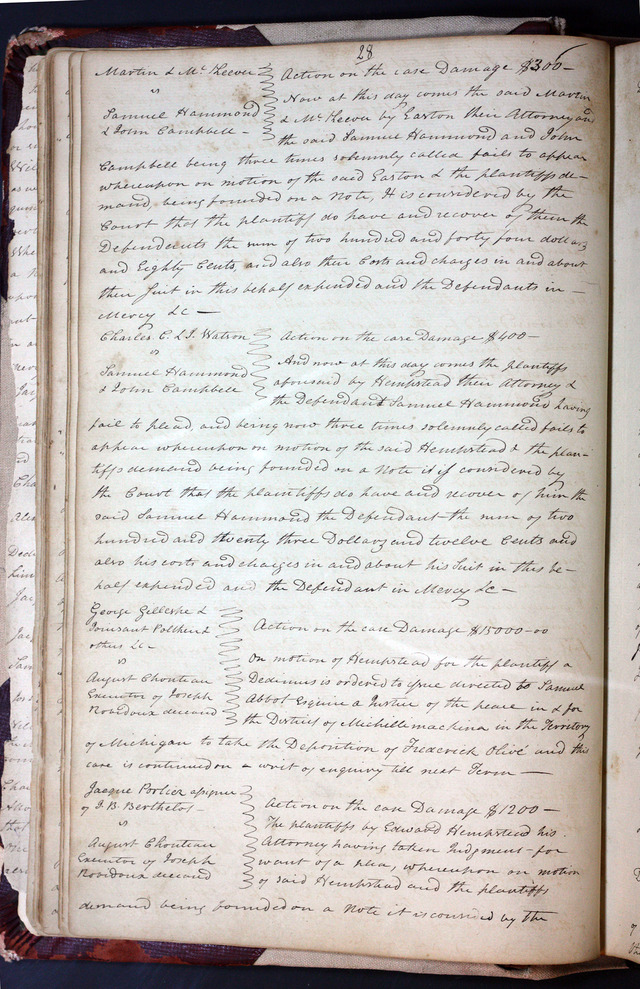 28
Martin & Mc Keever Action on the case Damage $300—
vs Now at this day comes the said Martin
Samuel Hammond & Mc Keever by Easton their Attorney and
& John Campbell — the said Samuel Hammond and John
Campbell being three times solemnly called fails to appear
whereupon on motion of the said Easton & the plaintiffs de-
mand, being founded on a Note, It is considered by the
Court that the plaintiff do have and recover of them the
Defendents the sum of two hundred and forty four dollars
and Eighty Cents, and also their Costs and charges in and about
their Suit in this behalf expended and the Defendants in —
Mercy &c —
Charles C. & J. Watson Action on the case Damage $400—
vs And now at this day comes the plaintiffs
Samuel Hammond aforesaid by Hempstead their Attorney &
& John Campbell the Defendant Samuel Hammond having
fail to plead, and being now three times solemnly called fails to
appear whereupon on motion of the said Hempstead & the plain-
tiffs demand being founded on a Note it is considered by
the Court that the plaintiffs do have and recover of him the
said Samuel Hammond the Defendant the sum of two
hundred and twenty three Dollars and twelve Cents and
also his costs and charges in and about his Suit in this be-
half expended and the Defendant in Mercy &c —
George Gillespie &
Toussant Pothier & Action on the case Damage $15000-00
others &c -
vs On motion of Hempstead for the plaintiff a
August Chouteau Dedimus is ordered to issue directed to Samuel
Executor of Joseph Abbot Esquire a Justice of the peace in & for
Robidoux deceasd the District of Michillemackina in the Territory
of Michigan to take the Deposition of Frederick Olivé and this
case is continued on a writ of enquiry till next Term —
Jacque Porlier assignee
of J. B. Berthelot — Action on the case Damage $1200 —
vs The plaintiffs by Edward Hempstead his
August Chouteau Attorney having taken Judgment for
Executor of Joseph want of a plea, whereupon on motion
Robidoux deceasd of said Hempstead and the plaintiffs
demand being founded on a Note it is considered by the